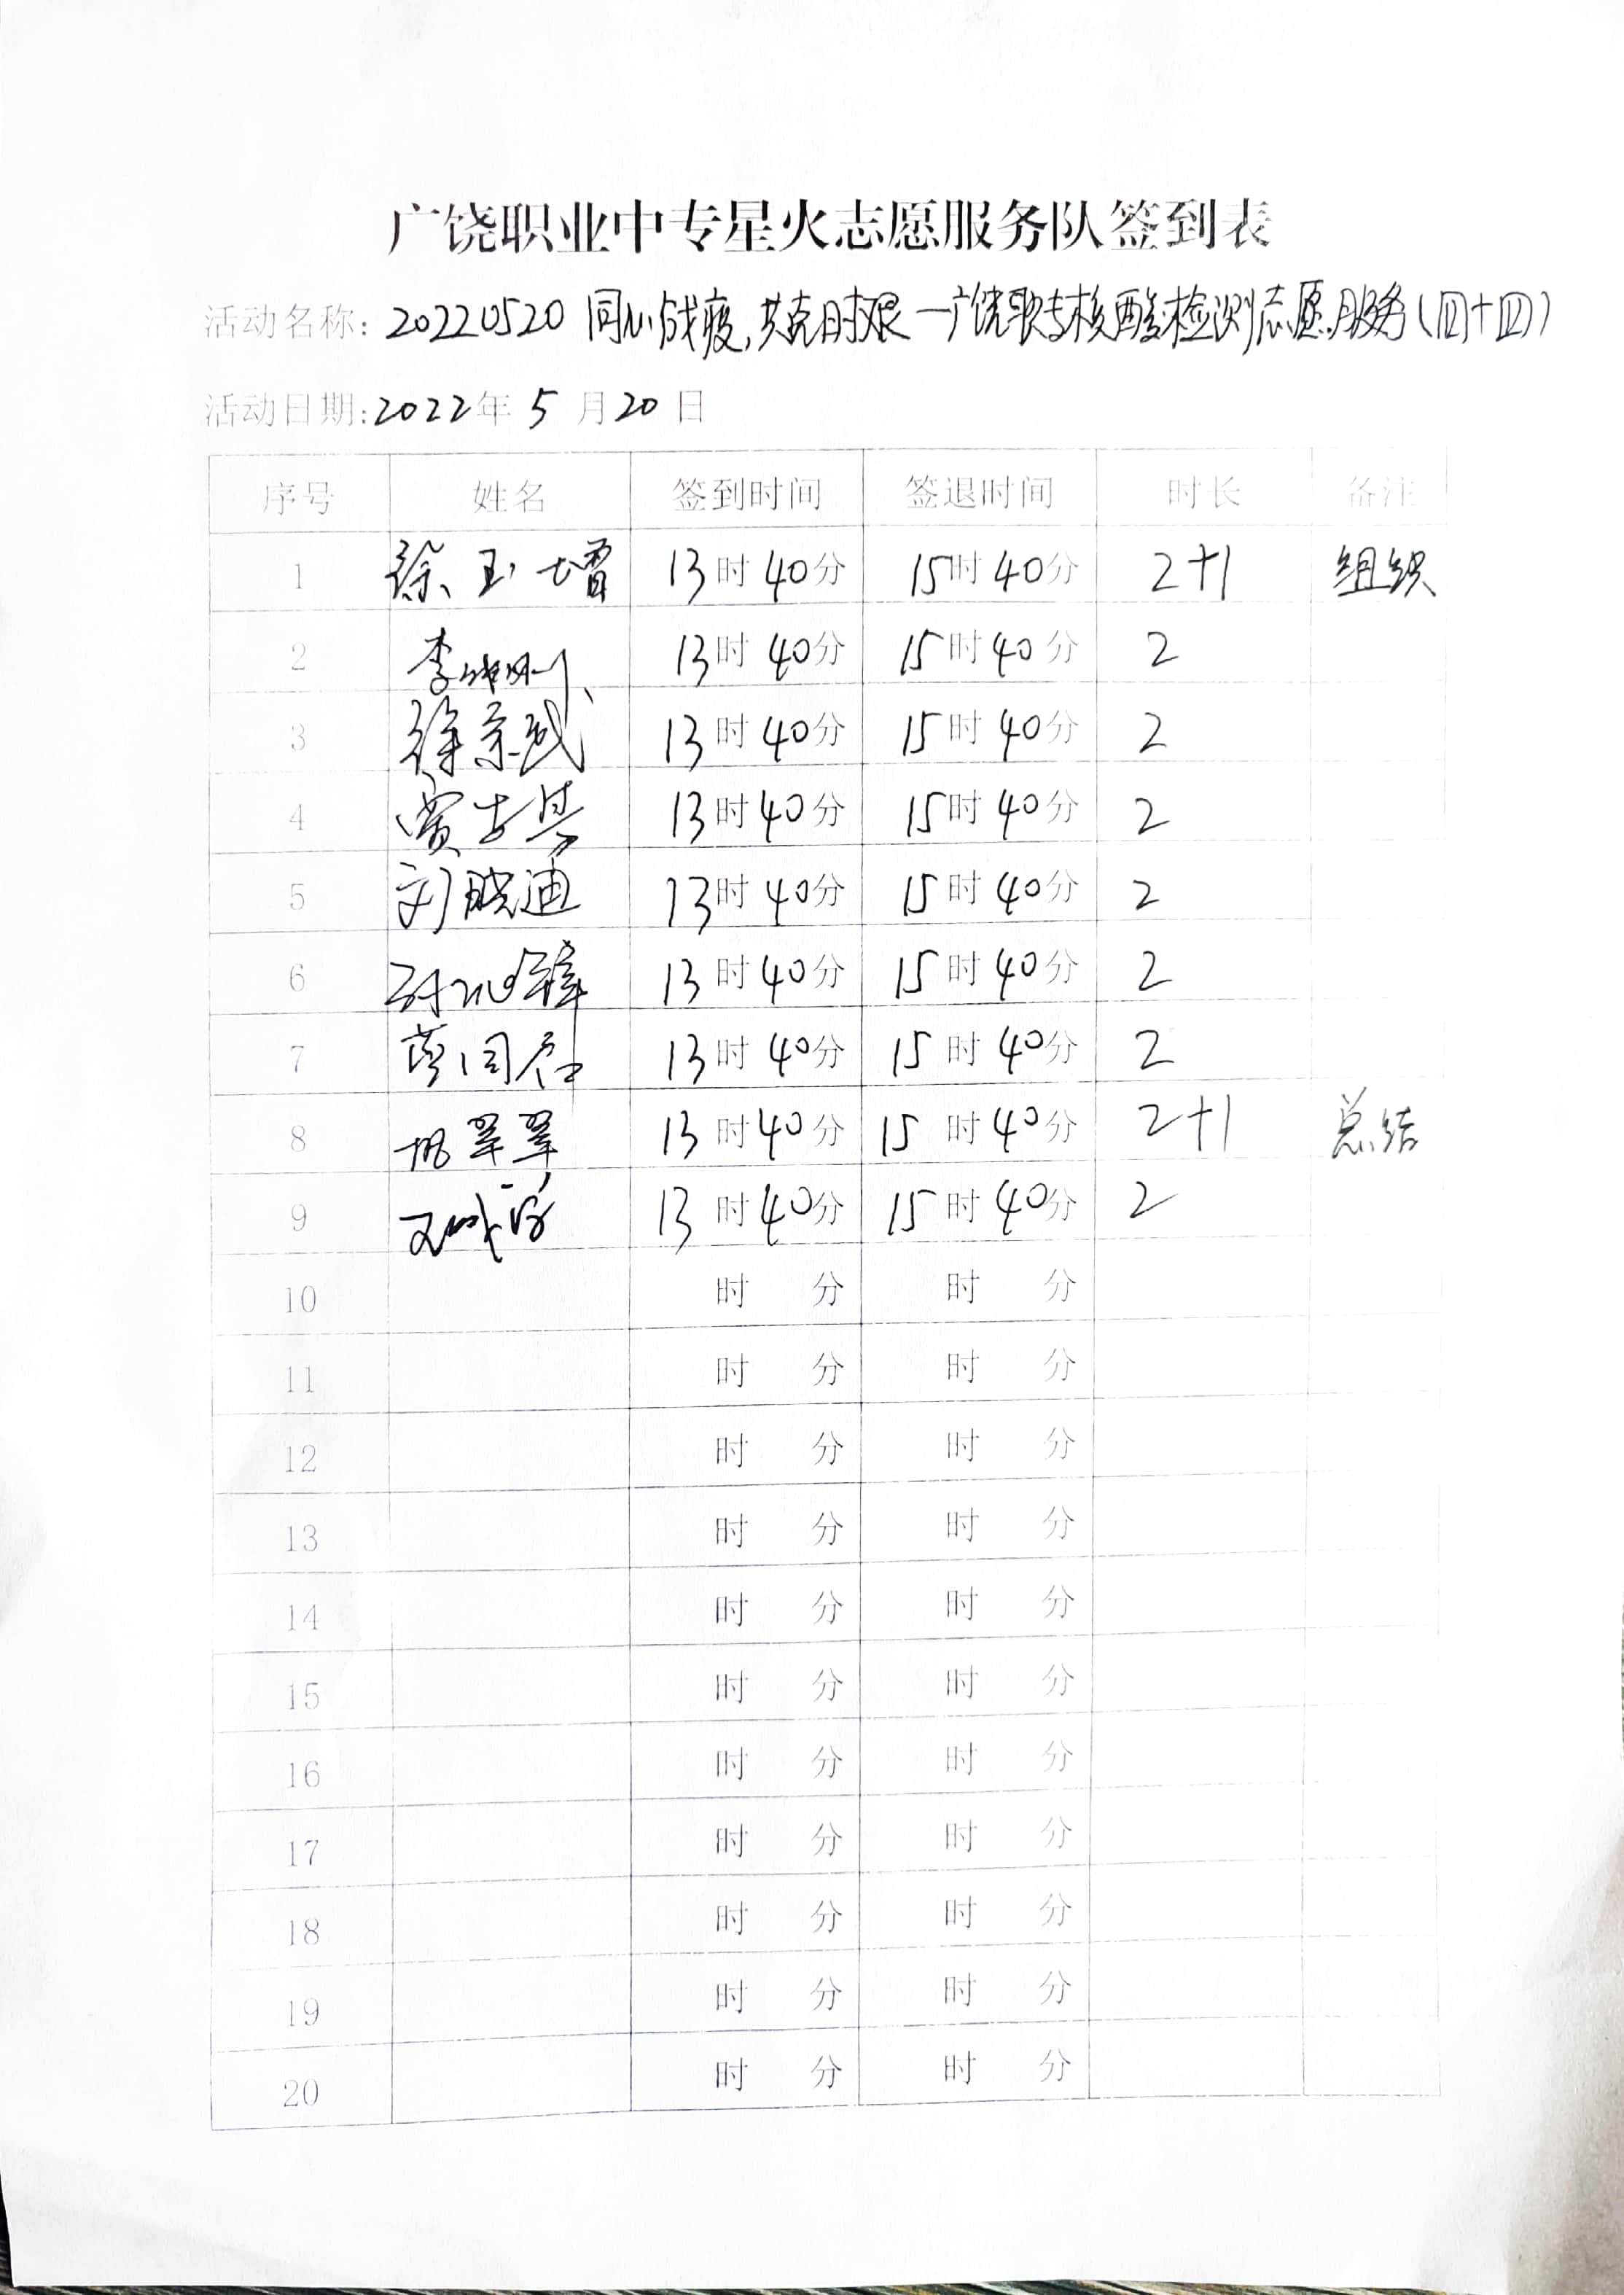 广饶职业中专星火志愿服务队签到表
活动名称: 20220520 同心战疫,共克时艰—广饶职专核酸检测志愿服务(四十四)
活动日期: 2022年 5 月 20 日
序号 姓名 签到时间 签退时间 时长 备注
1 徐玉增 13时40分 15时40分 2+1 组织
2 13时40分 15时40分 2
3 徐宗武 13时40分 15时40分 2
4 13时40分 15时40分 2
5 刘晓迪 13时40分 15时40分 2
6 13时40分 15时40分 2
7 13时40分 15时40分 2
8 翠翠 13时40分 15时40分 2+1 总结
9 13时40分 15时40分 2
10 时 分 时 分
11 时 分 时 分
12 时 分 时 分
13 时 分 时 分
14 时 分 时 分
15 时 分 时 分
16 时 分 时 分
17 时 分 时 分
18 时 分 时 分
19 时 分 时 分
20 时 分 时 分